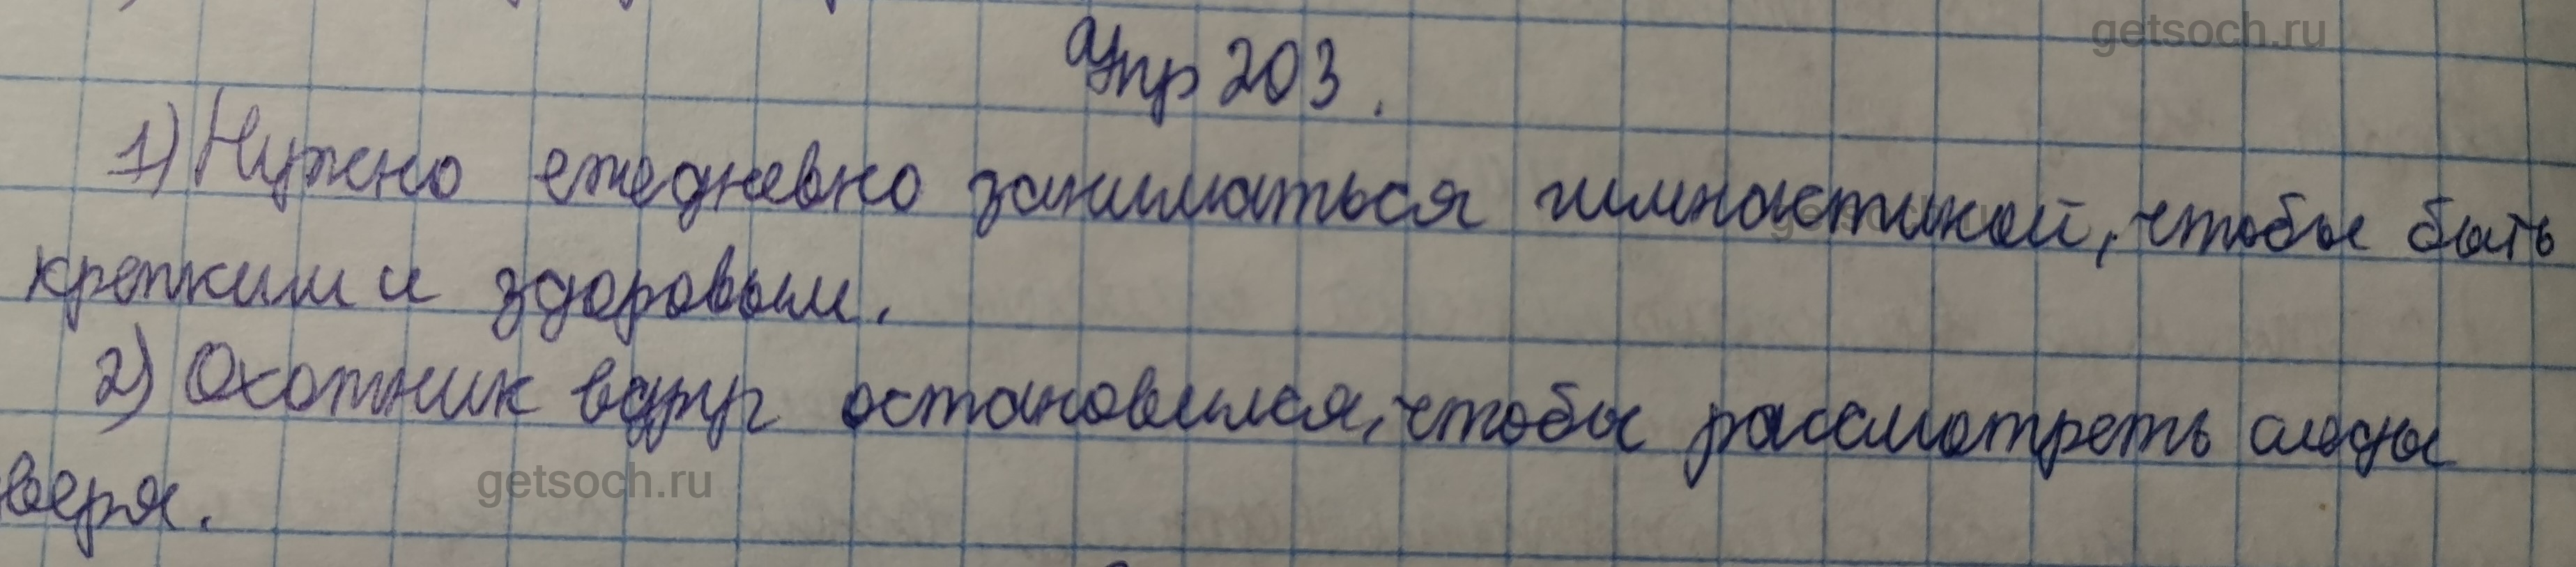 getsoch.ru
Упр 203.
1) Нужно ежедневно заниматься гимнастикой, чтобы быть
крепким и здоровым.
2) Охотник вдруг остановился, чтобы рассмотреть следы
зверя.
getsoch.ru